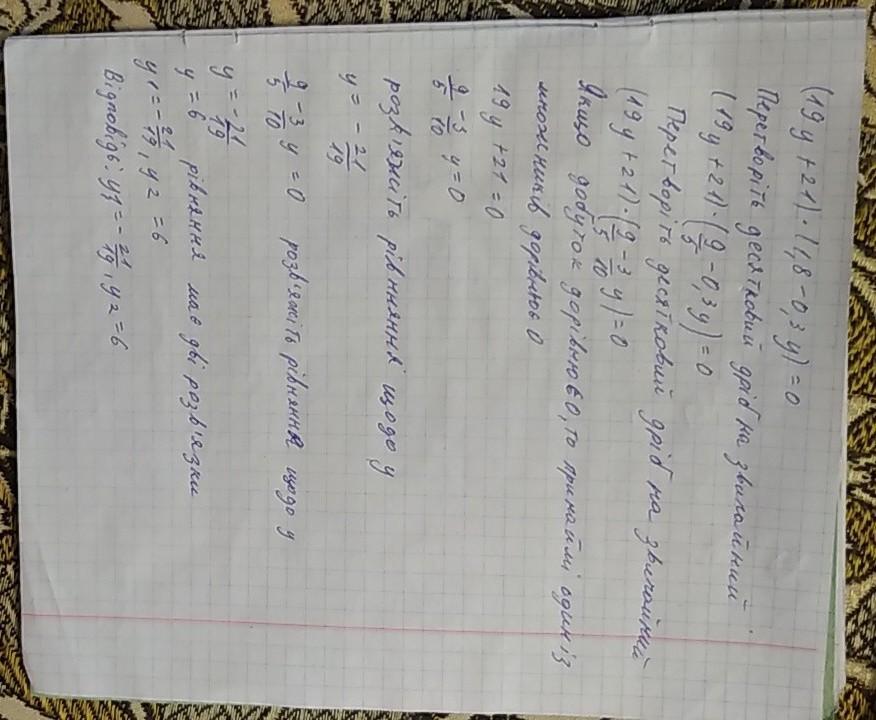 (19y + 21) · (1,8 - 0,3y) = 0
Перетворіть десятковий дріб на звичайний
(19y + 21) · (9/5 - 0,3y) = 0
Перетворіть десятковий дріб на звичайний
(19y + 21) · (9/5 - 3/10 y) = 0
Якщо добуток дорівнює 0, то принаймі один із
множників дорівнює 0
19y + 21 = 0
9/5 - 3/10 y = 0
розв'яжіть рівняння щодо y
y = - 21/19
9/5 - 3/10 y = 0 розв'яжіть рівняння щодо y
y = - 21/19
y = 6 рівняння має дві розв'язки
y1 = - 21/19, y2 = 6
Відповідь: y1 = - 21/19, y2 = 6